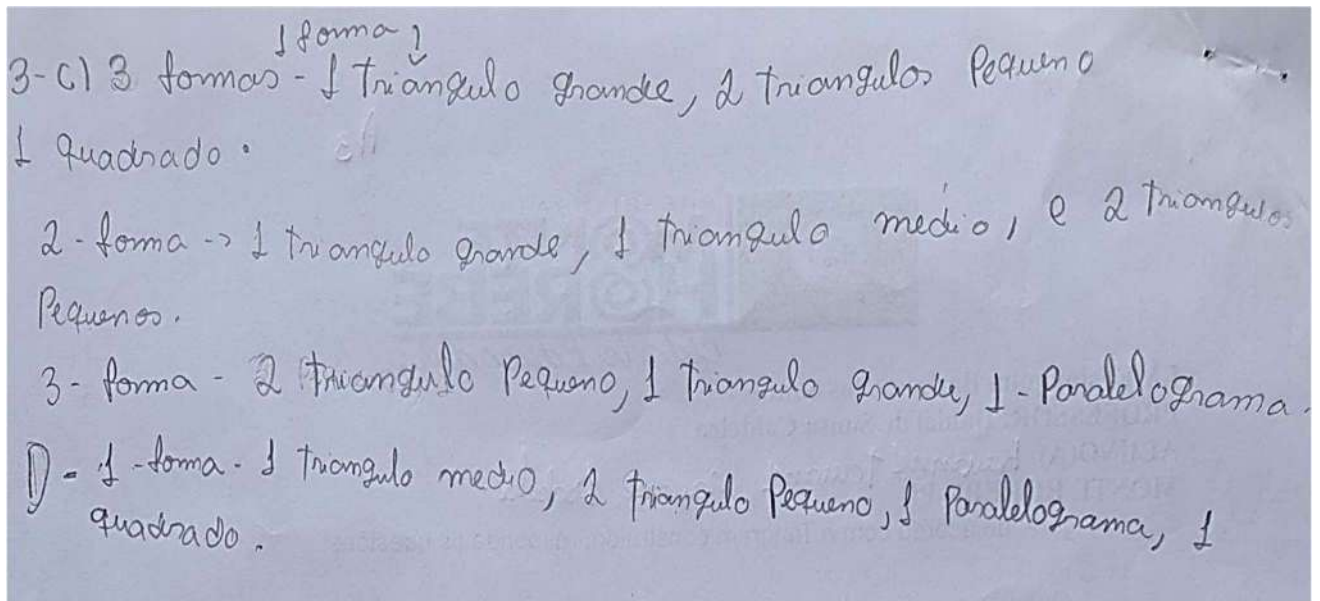 1 forma
3-c) 3 formas - 1 triângulo grande, 2 triangulos Pequeno
1 quadrado.
2 - forma -> 1 triangulo grande, 1 triangulo medio, e 2 triangulos
Pequenos.
3 - forma - 2 triangulo Pequeno, 1 triangulo grande, 1 - Paralelograma.
D - 1 - forma - 1 triangulo medio, 2 triangulo Pequeno, 1 Paralelograma, 1
quadrado.